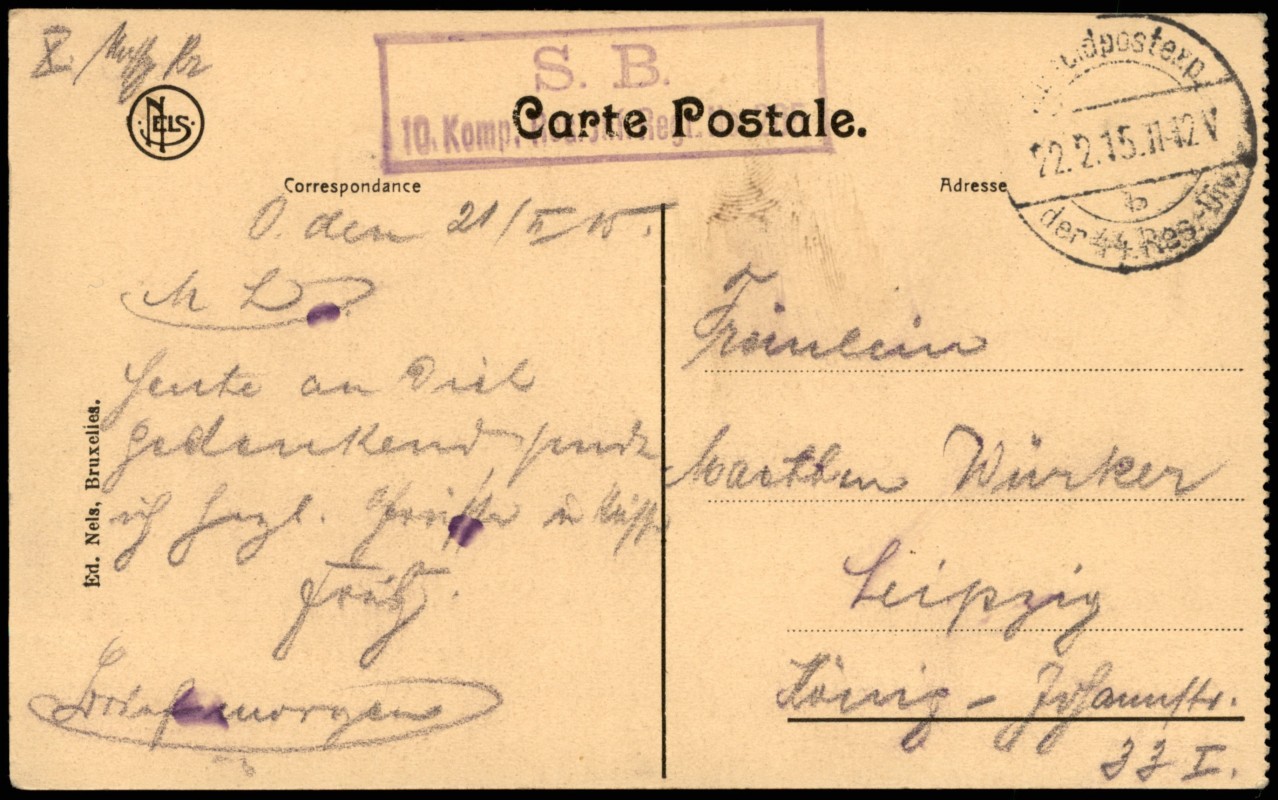 S. B.
10. Komp. Regt.
Carte Postale.
NELS
Feldpostexp.
22.2.15.11-12V
b
der 44. Res.-Div.
Correspondance
Adresse
O. den 21/II 15.
M L
Heute an Dich
gedenkend sende
ich herzl. Grüsse u Küsse
Fritz.
Fräulein
Marthe Würker
Leipzig
König-Johannstr.
33 I.
Ed. Nels, Bruxelles.